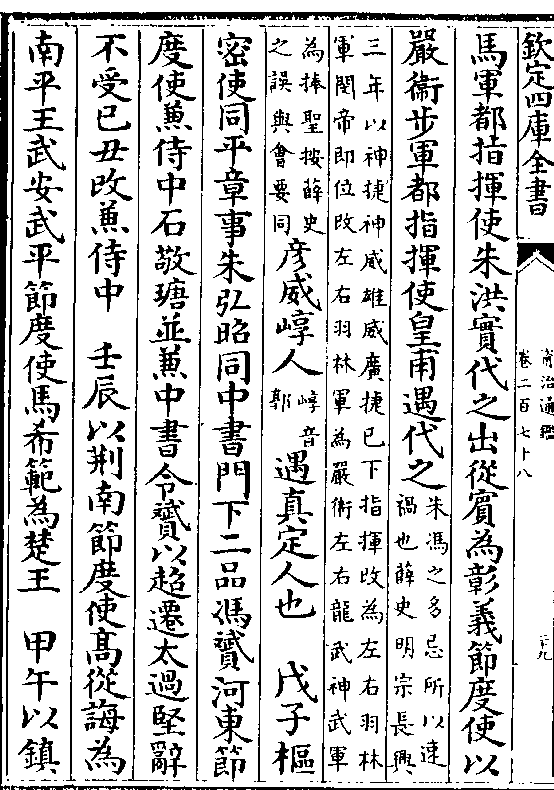 欽定四庫全書
資治通鑑
卷二百七十八
馬軍都指揮使朱洪實代之出從賓為彰義節度使以
嚴衞步軍都指揮使皇甫遇代之
朱馮之多忌所以速
禍也薛史明宗長興
三年以神捷神威雄威廣捷已下指揮改為左右羽林
軍閔帝即位改左右羽林軍為嚴衞左右龍武神武軍
為捧聖按薛史
之誤與會要同
彥威崞人
崞音
郭
遇真定人也　戊子樞
密使同平章事朱弘昭同中書門下二品馮贇河東節
度使兼侍中石敬瑭並兼中書令贇以超遷太過堅辭
不受已丑改兼侍中　壬辰以荆南節度使髙從誨為
南平王武安武平節度使馬希範為楚王　甲午以鎮